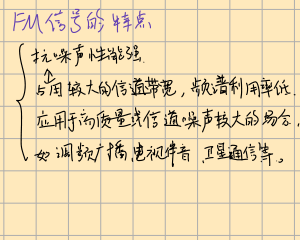 FM信号的特点
抗噪声性能强.
占用较大的信道带宽，频谱利用率低.
应用于高质量或信道噪声较大的场合,
如调频广播,电视伴音,卫星通信等。